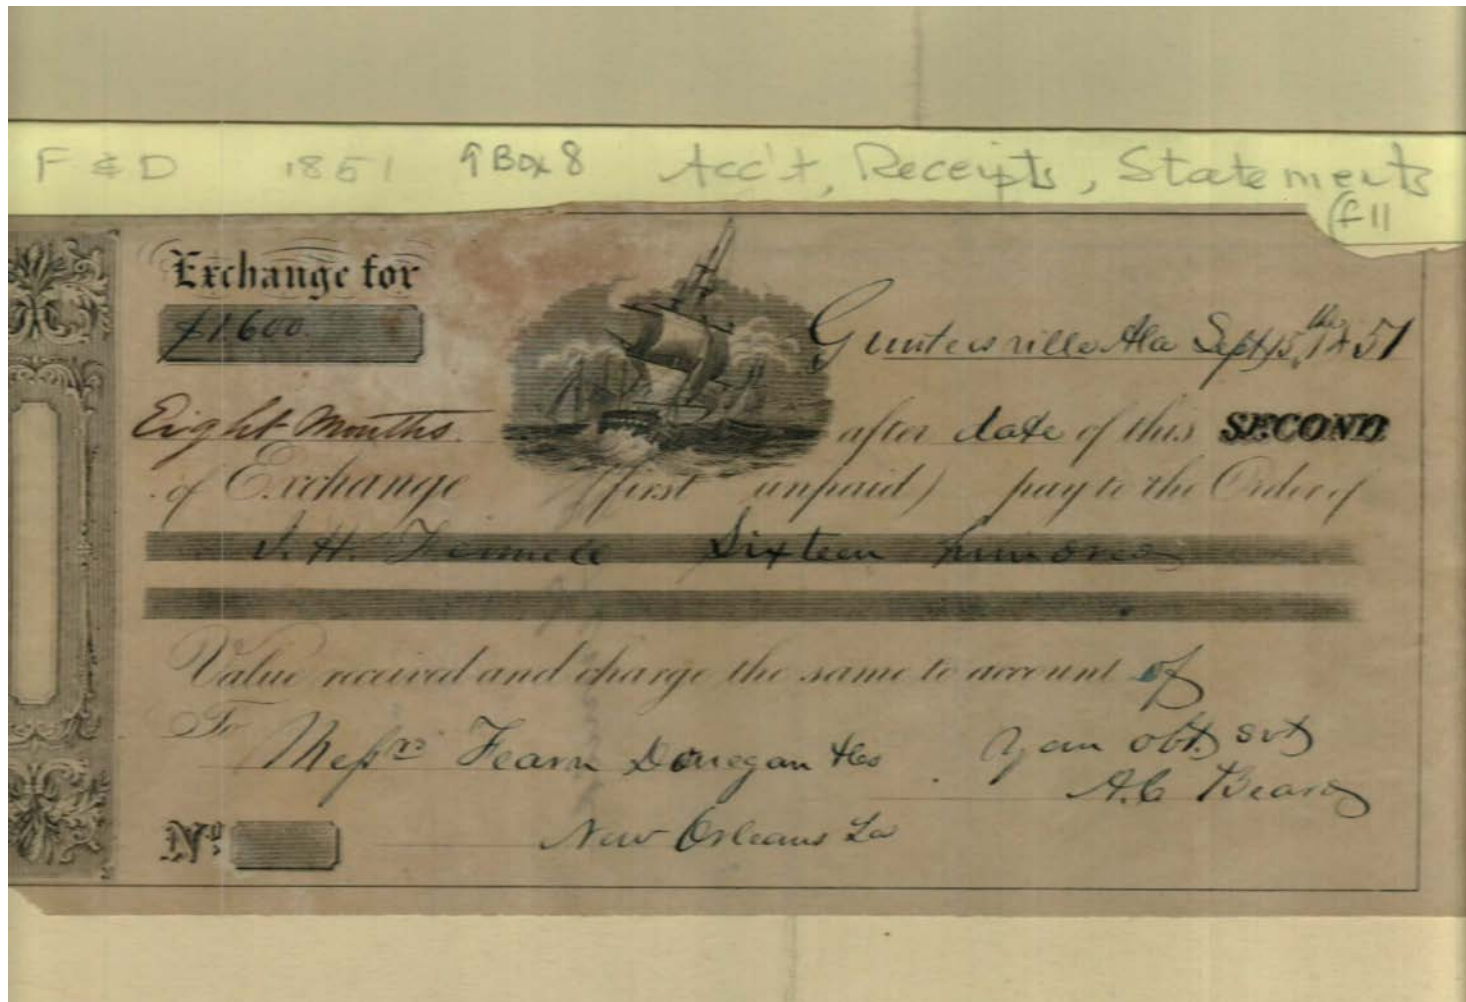 F & D 1851 Box 8 Acc't, Receipts, Statements
f 11
Exchange for
$1600.
Guntersville Ala Sept 15th 1851
Eight Months after date of this SECOND
of Exchange (first unpaid) pay to the Order of
J. H. Sixteen hundred
Value received and charge the same to account of
To Messrs Fearn Donegan & Co Your obt. svt
A. C. Beard
No New Orleans La